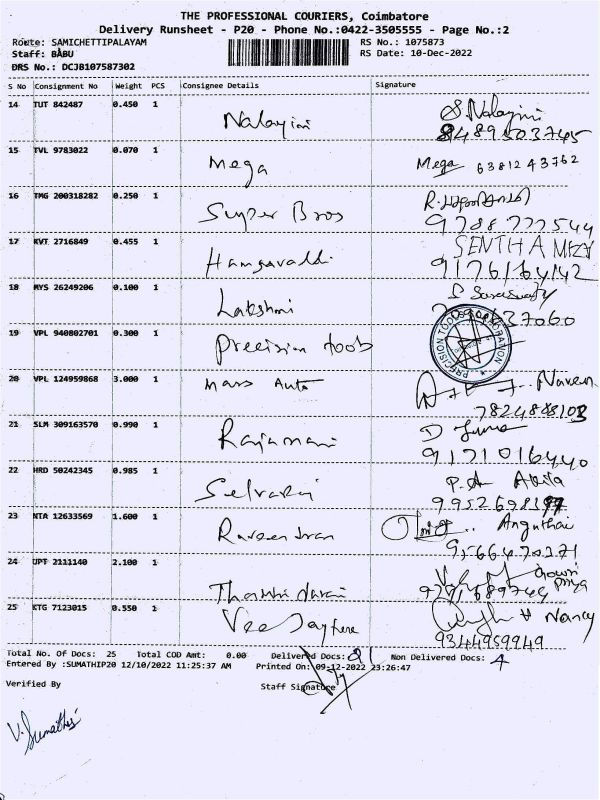 THE PROFESSIONAL COURIERS, Coimbatore
Delivery Runsheet - P20 - Phone No.:0422-3505555 - Page No.:2
Route: SAMICHETTIPALAYAM RS No.: 1075873
Staff: BABU RS Date: 10-Dec-2022
DRS No.: DCJB107587302
S No Consignment No Weight PCS Consignee Details Signature
14 TUT 842487 0.450 1 Nalayini S. Nalayini
8489503745
15 TVL 9783022 0.070 1 Mega Mega 6381243762
16 TMG 200318282 0.250 1 Super Bros R.
9788777544
17 KVT 2716849 0.455 1 SENTHAMIZH
9176164142
18 MYS 26249206 0.100 1 Lakshmi S Saraswathy
37060
19 VPL 940802701 0.300 1 Precision tools PRECISION TOOLS CORPORATION
20 VPL 124959868 3.000 1 Mars Auto Naveen
7824888103
21 SLM 309163570 0.990 1 Rajamani D
9171016440
22 HRD 50242345 0.985 1 Selvaraj P.A Abila
99526983
23 NTA 12633569 1.600 1 Raveendran Anguthai
9566470371
24 UPT 2111140 2.100 1 Gowri
Priya
25 KTG 7123015 0.550 1 Vee Jay Nancy
9344959949
Total No. of Docs: 25 Total COD Amt: 0.00 Delivered Docs: 21 Non Delivered Docs: 4
Entered By :SUMATHIP20 12/10/2022 11:25:37 AM Printed On: 09-12-2022 23:26:47
Verified By Staff Signature
V. Sumathi